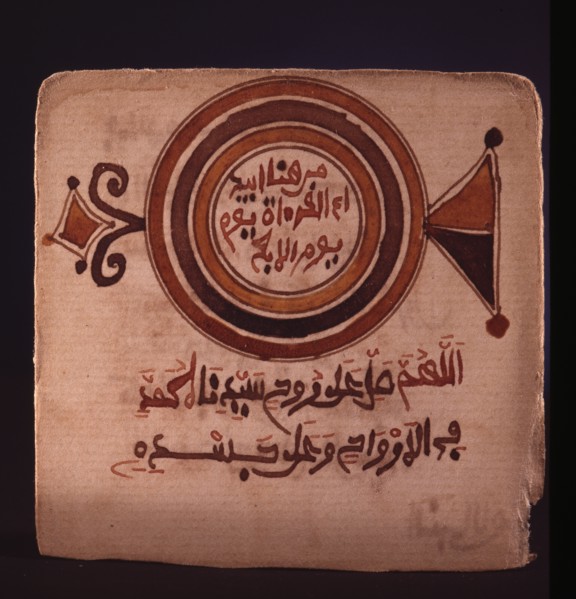 من هنا ابتد
اء القرءاة يوم
يوم
اَللَّهُمَّ صَلِّ عَلَى رُوحِ سَيِّدِنَا مُحَمَّدٍ
في الَارْوَاحِ وَعَلَى جَسَدِهِ